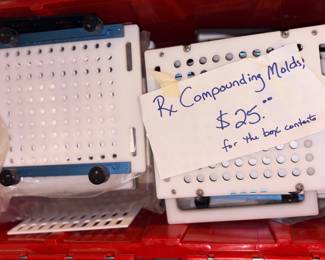 Rx Compounding Molds;
$25.00
for the box contents